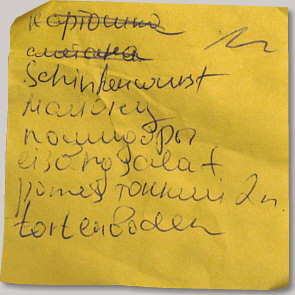 картошка
сметана
Schinkenwurst
малому
помидоры
eisbergsalat
тонкий 2 п.
tortenboden